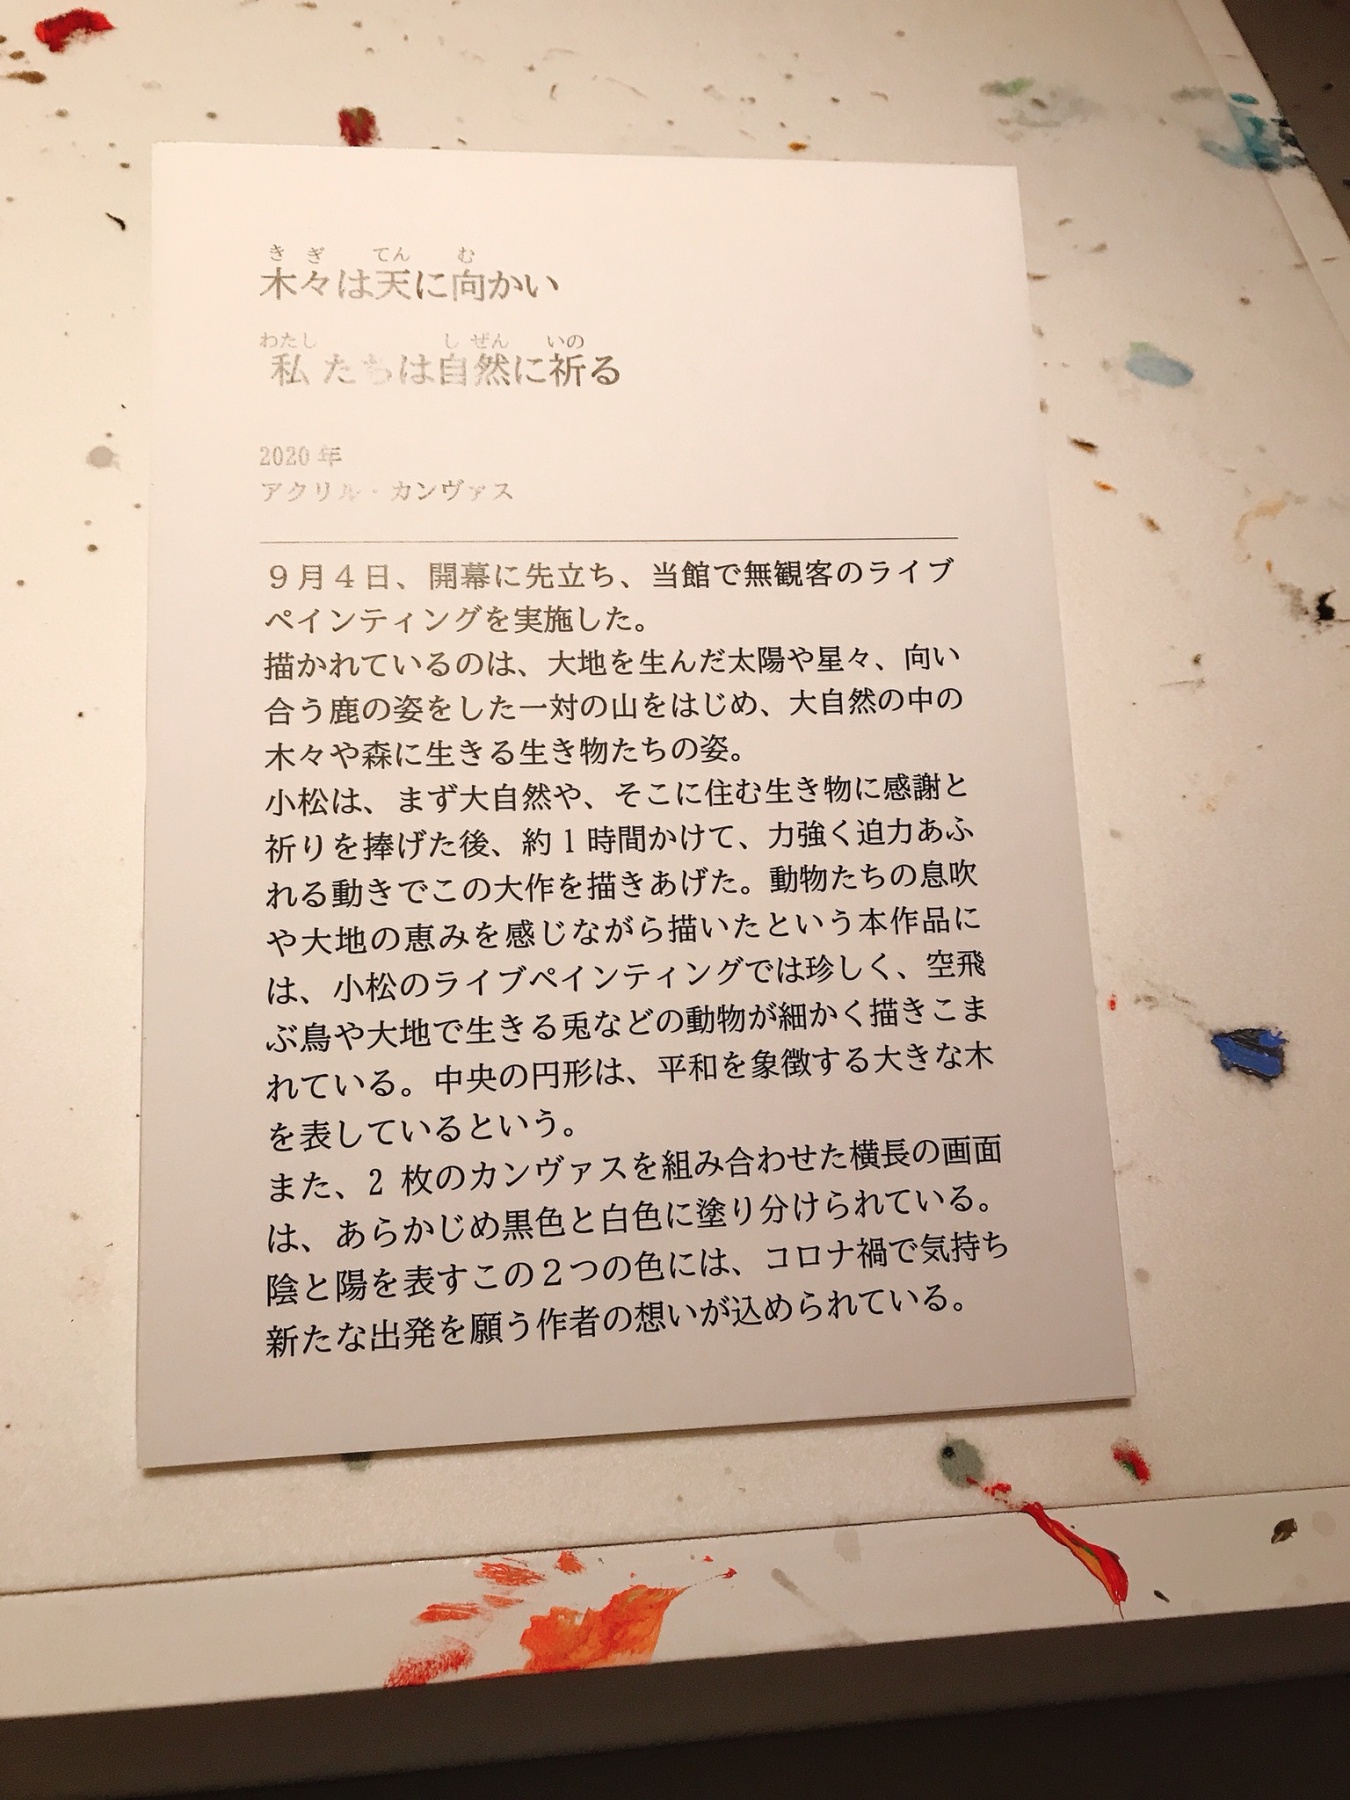 きぎ てん む
木々は天に向かい
わたし しぜん いの
私たちは自然に祈る
2020年
アクリル・カンヴァス
９月４日、開幕に先立ち、当館で無観客のライブ
ペインティングを実施した。
描かれているのは、大地を生んだ太陽や星々、向い
合う鹿の姿をした一対の山をはじめ、大自然の中の
木々や森に生きる生き物たちの姿。
小松は、まず大自然や、そこに住む生き物に感謝と
祈りを捧げた後、約1時間かけて、力強く迫力あふ
れる動きでこの大作を描きあげた。動物たちの息吹
や大地の恵みを感じながら描いたという本作品に
は、小松のライブペインティングでは珍しく、空飛
ぶ鳥や大地で生きる兎などの動物が細かく描きこま
れている。中央の円形は、平和を象徴する大きな木
を表しているという。
また、2 枚のカンヴァスを組み合わせた横長の画面
は、あらかじめ黒色と白色に塗り分けられている。
陰と陽を表すこの２つの色には、コロナ禍で気持ち
新たな出発を願う作者の想いが込められている。